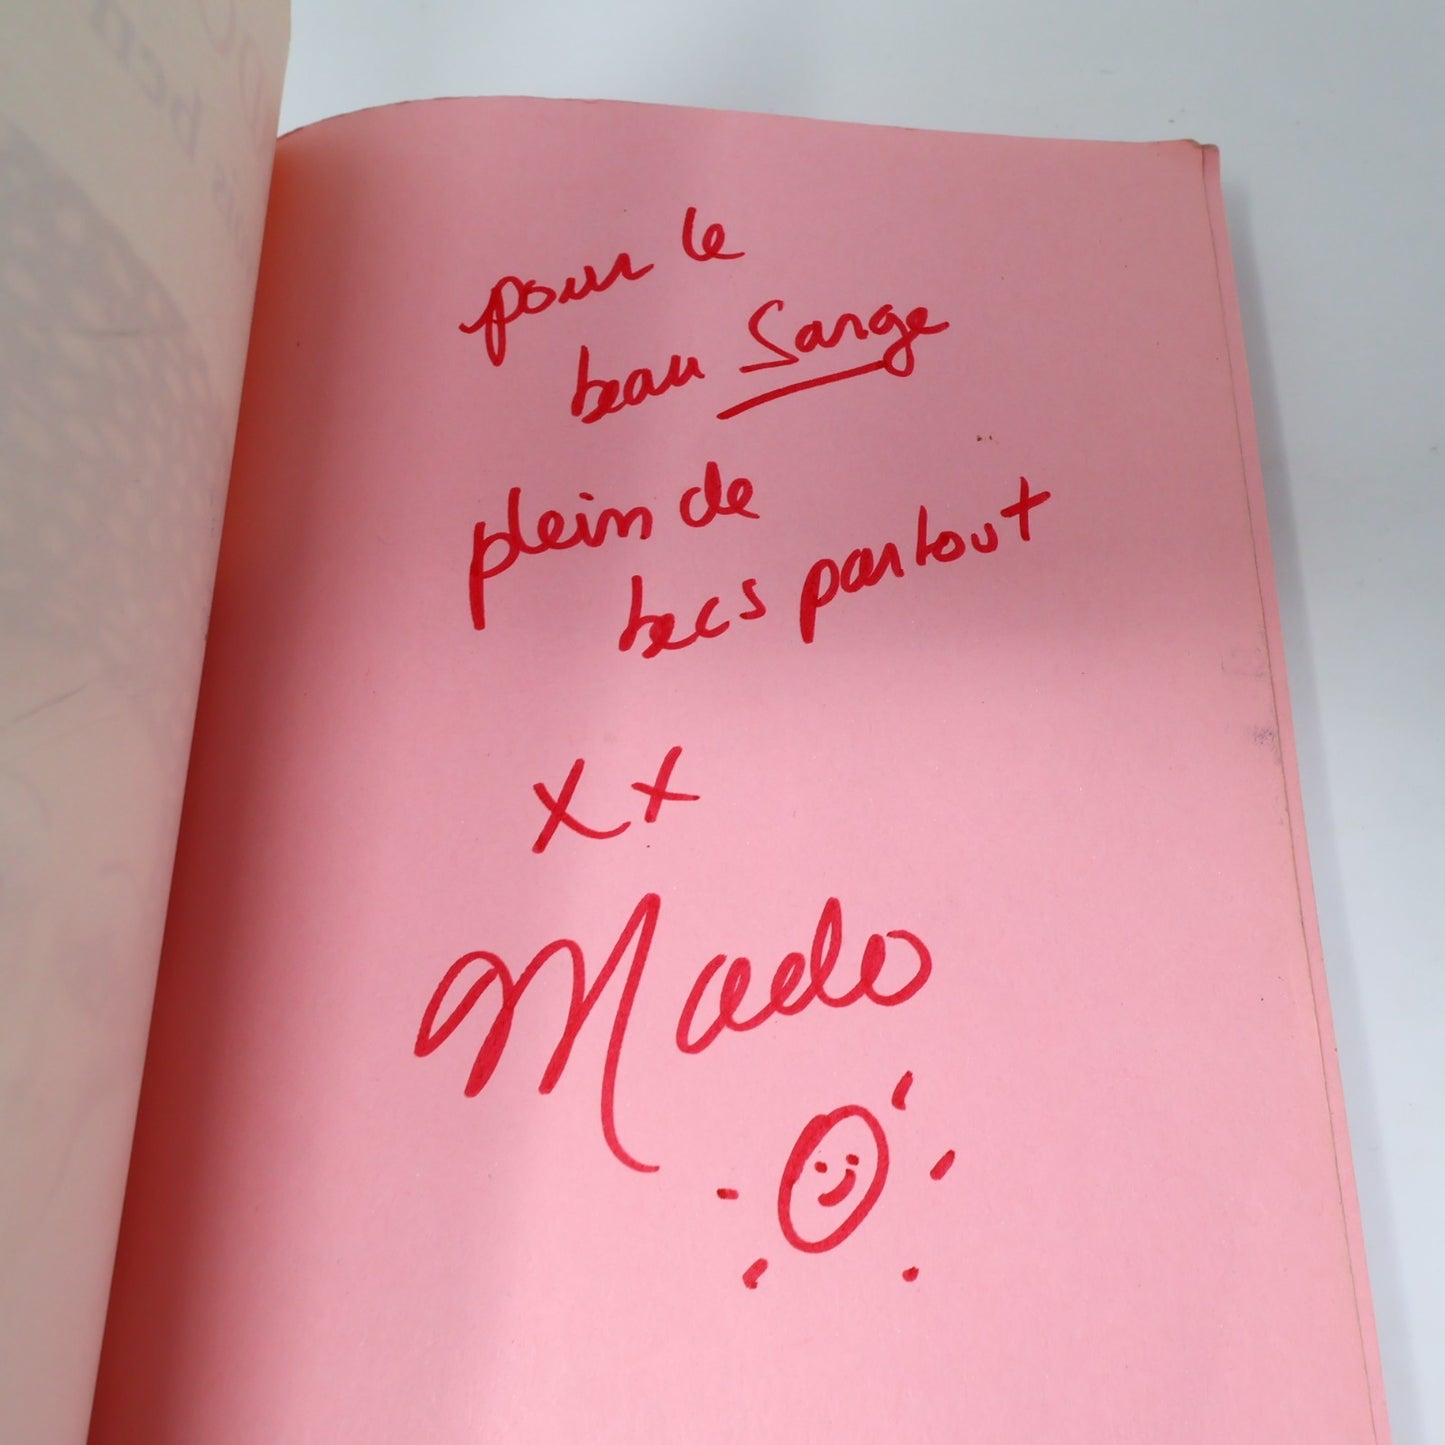 pour le
beau Sange
plein de
becs partout
xx
Mado